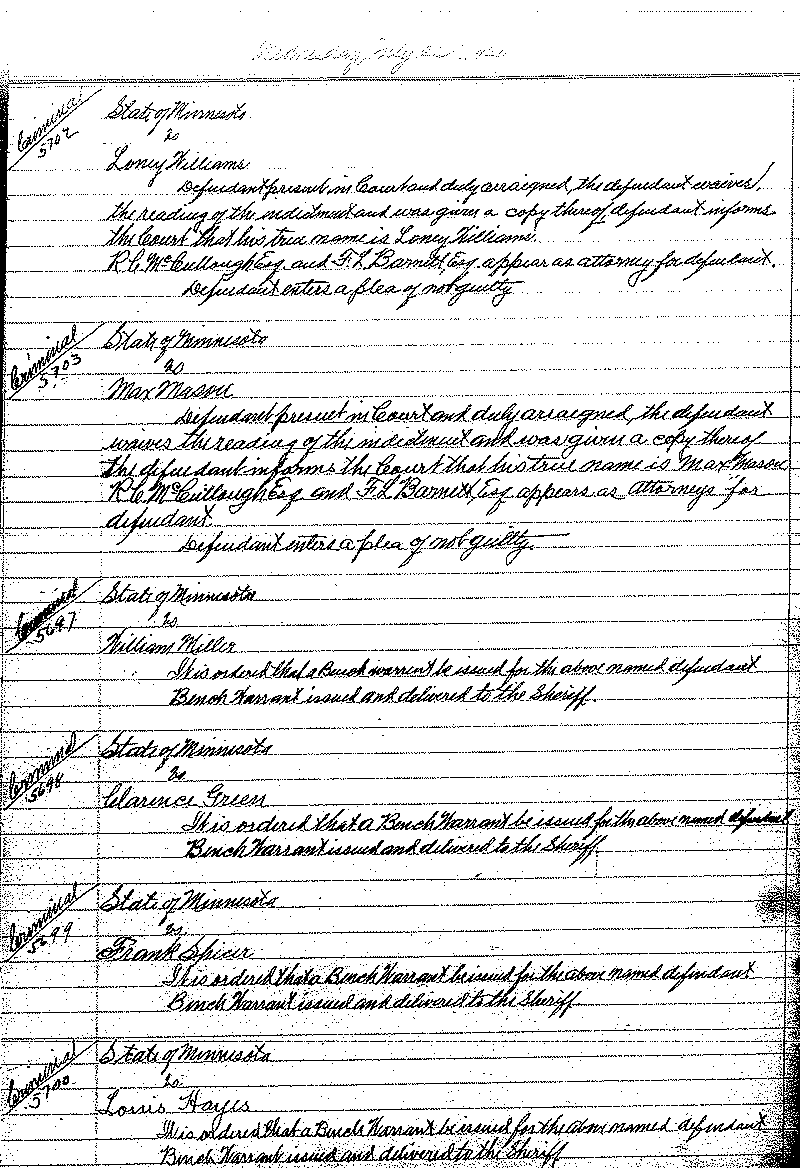 Wednesday July
Criminal
5702
State of Minnesota
vs
Loney Williams
Defendant present in Court and duly arraigned, the defendant waives
the reading of the indictment and was given a copy thereof defendant informs
the Court that his true name is Loney Williams.
R. C. McCullough Esq and F. L. Barnett Esq appear as attorney for defendant.
Defendant enters a plea of not guilty
Criminal
5703
State of Minnesota
vs
Max Mason
Defendant present in Court and duly arraigned, the defendant
waives the reading of the indictment and was given a copy thereof
the defendant informs the Court that his true name is Max Mason
R. C. McCullough Esq and F. L. Barnett Esq appears as attorneys for
defendant.
Defendant enters a plea of not guilty.
Criminal
5697
State of Minnesota
vs
William Miller
It is ordered that a Bench warrent be issued for the above named defendant
Bench Warrant issued and delivered to the Sheriff.
Criminal
5698
State of Minnesota
vs
Clarence Green
It is ordered that a Bench Warrant be issued for the above named defendant
Bench Warrant issued and delivered to the Sheriff
Criminal
5699
State of Minnesota
vs
Frank Spicer
It is ordered that a Bench Warrant be issued for the above named defendant
Bench Warrant issued and delivered to the Sheriff
Criminal
5700
State of Minnesota
vs
Louis Hayes
It is ordered that a Bench Warrant be issued for the above named defendant
Bench Warrant issued and delivered to the Sheriff